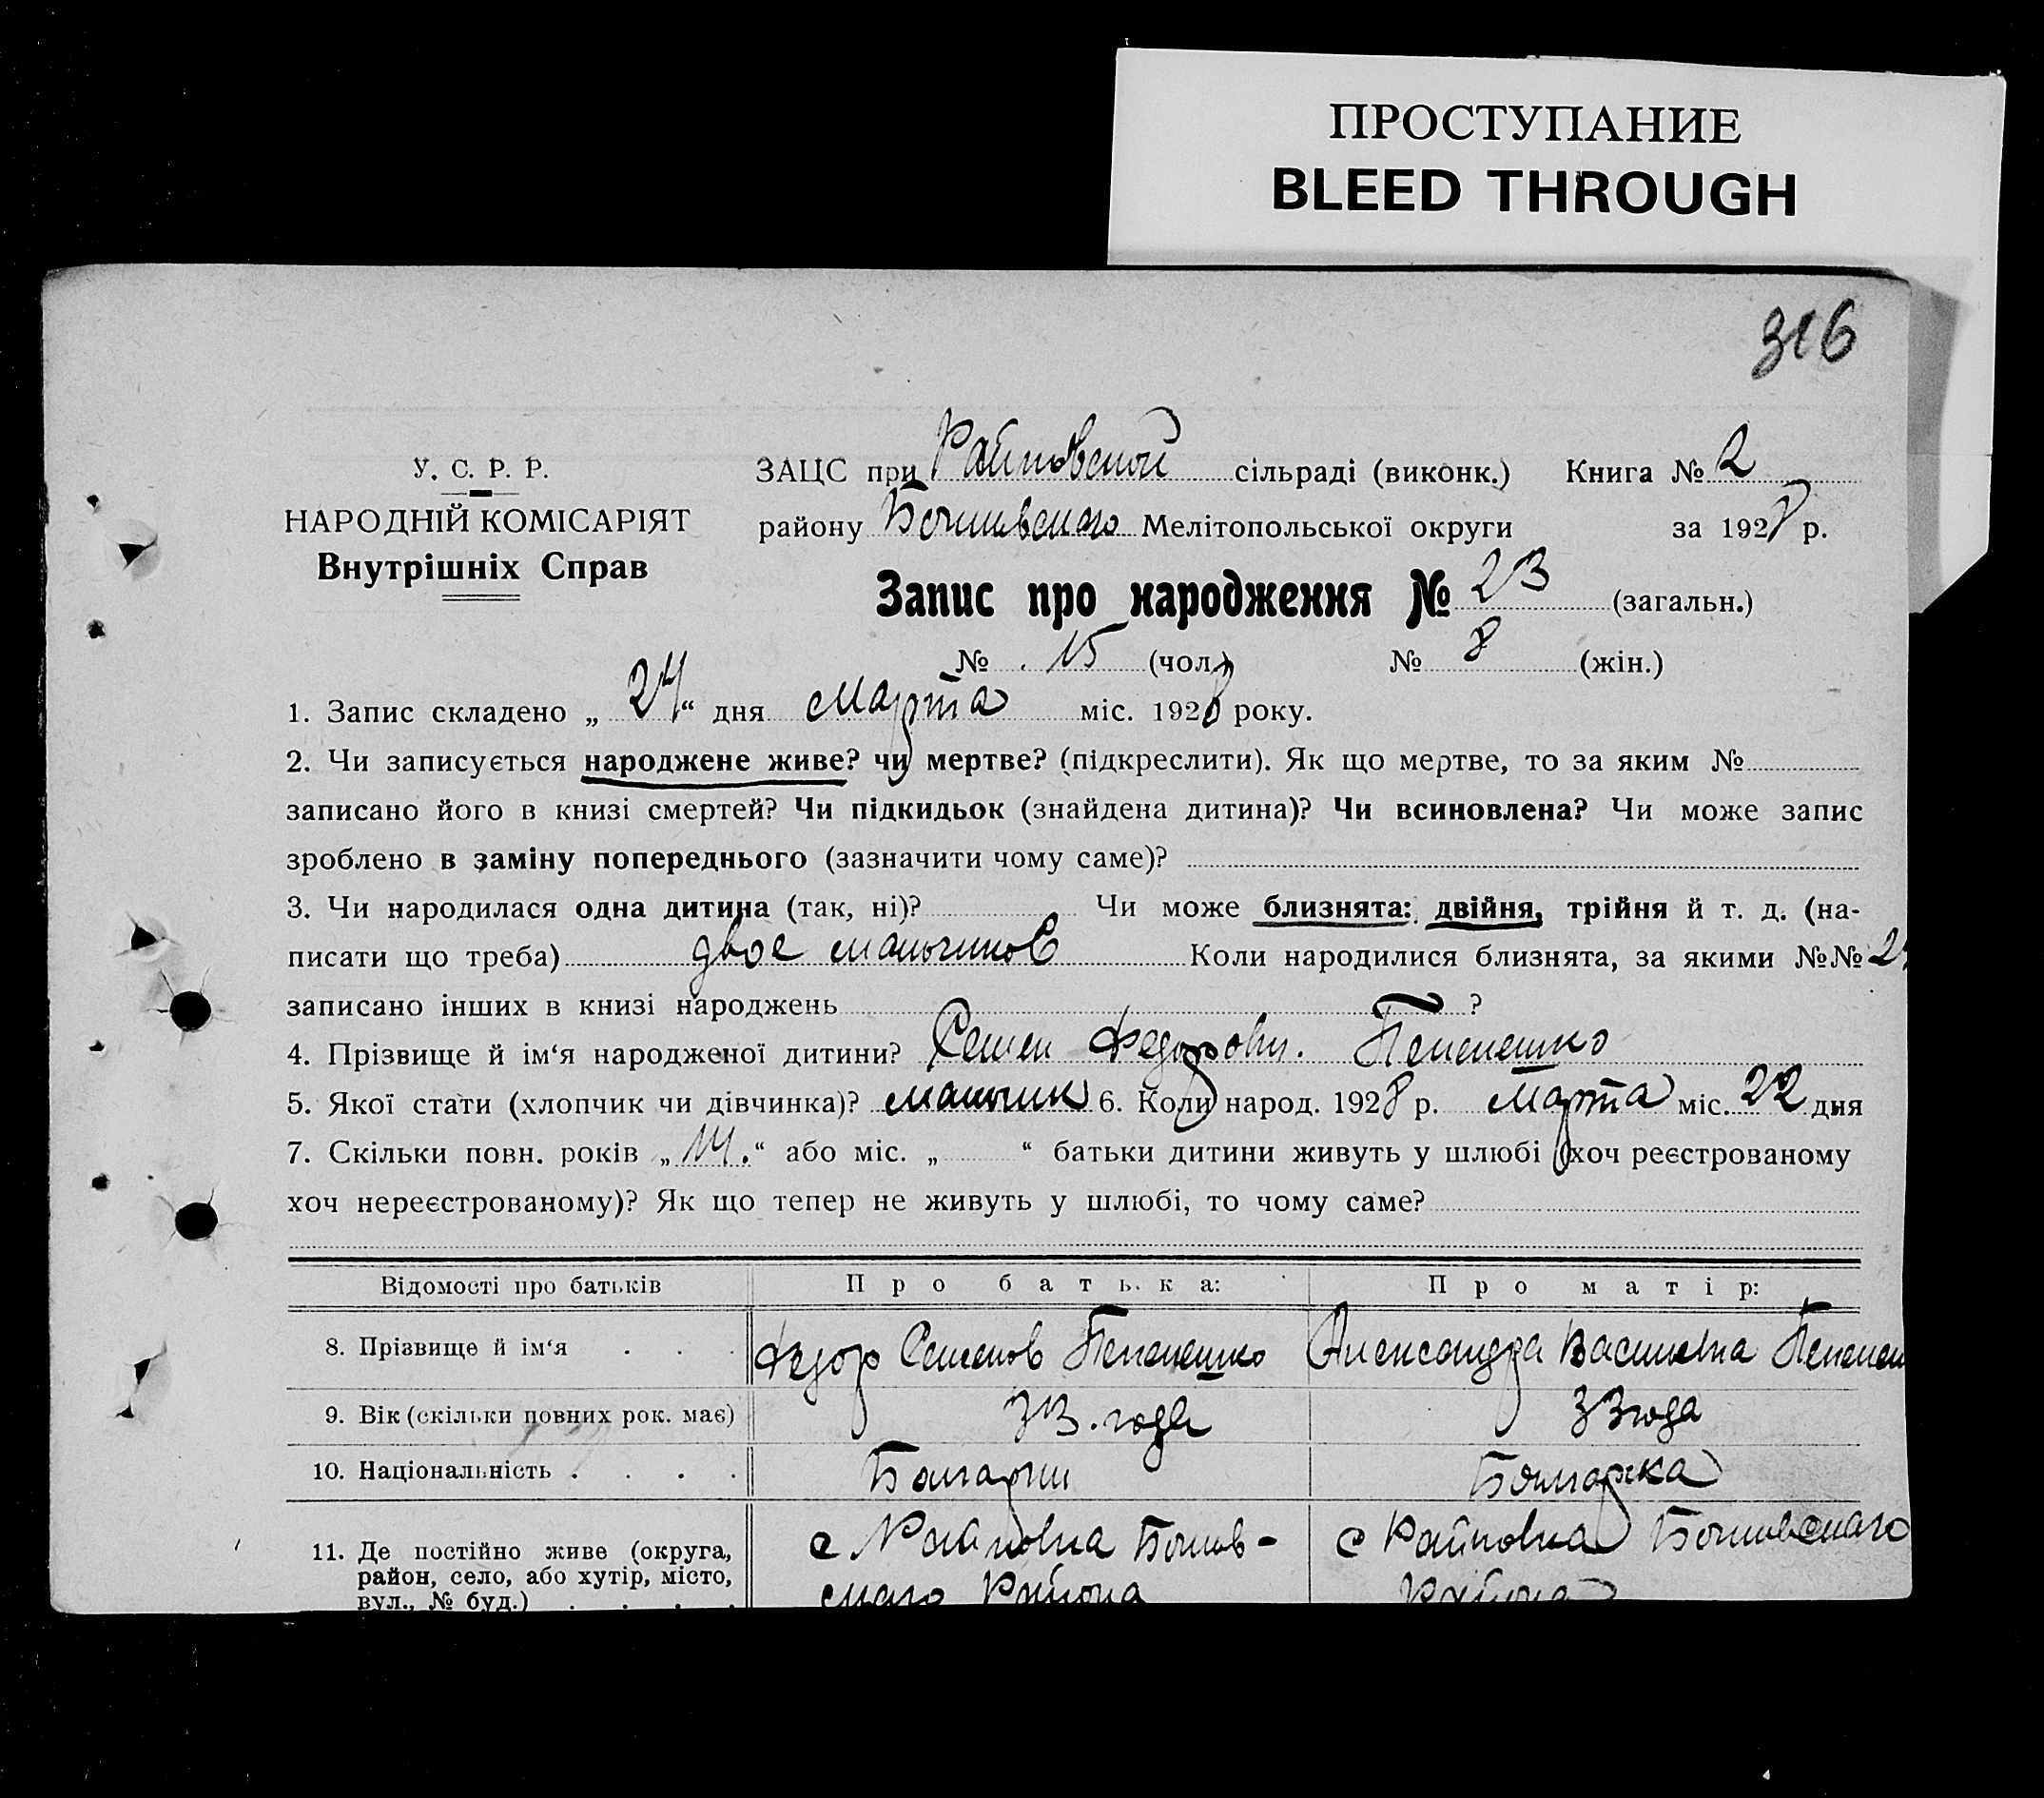 ПРОСТУПАНИЕ
BLEED THROUGH
316
У. С. Р. Р.
НАРОДНІЙ КОМІСАРІЯТ
Внутрішніх Справ
ЗАЦС при Райновской сільраді (виконк.) Книга № 2
району Мелітопольської округи за 1928 р.
Запис про народження № 23 (загальн.)
№ 15 (чол.) № 8 (жін.)
1. Запис складено „ 24 “ дня Марта міс. 1928 року.
2. Чи записується народжене живе? чи мертве? (підкреслити). Як що мертве, то за яким №
записано його в книзі смертей? Чи підкидьок (знайдена дитина)? Чи всиновлена? Чи може запис
зроблено в заміну попереднього (зазначити чому саме)?
3. Чи народилася одна дитина (так, ні)? Чи може близнята: двійня, трійня й т. д. (на-
писати що треба) двое мальчиков Коли народилися близнята, за якими №№
записано інших в книзі народжень ?
4. Прізвище й ім‘я народженої дитини? Семен Федорович. Пепенешко
5. Якої стати (хлопчик чи дівчинка)? мальчик 6. Коли народ. 1928 р. Марта міс. 22 дня
7. Скільки повн. років „ 14. “ або міс. „ “ батьки дитини живуть у шлюбі (хоч реєстрованому
хоч нереєстрованому)? Як що тепер не живуть у шлюбі, то чому саме?
Відомості про батьків Про батька: Про матір:
8. Прізвище й ім‘я . . . Федор Семенов Пепенешко Александра Васильевна
9. Вік (скільки повних рок. має) 33. года 33 года
10. Національність . . . . Болгарин Болгарка
11. Де постійно живе (округа, с Райновка с Райновка
район, село, або хутір, місто, Района Района
вул., № буд.) . . . .